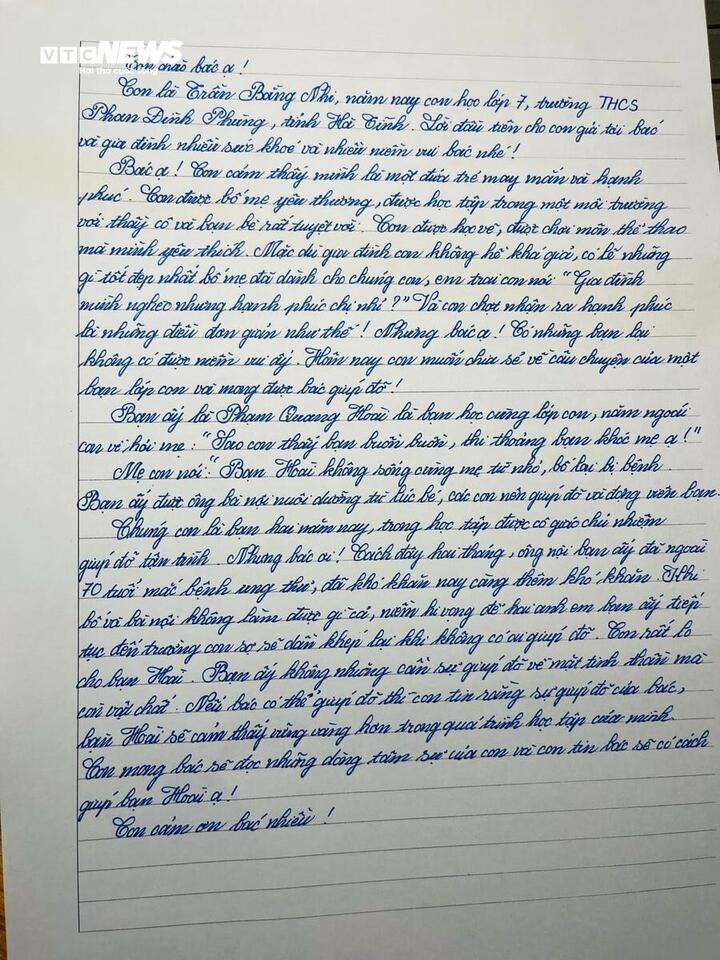 VTC NEWS
Hơi thở cuộc sống
Con chào bác ạ!
Con là Trần Băng Nhi, năm nay con học lớp 7, trường THCS
Phan Đình Phùng, tỉnh Hà Tĩnh. Lời đầu tiên cho con gửi tới bác
và gia đình nhiều sức khoẻ và nhiều niềm vui bác nhé!
Bác ạ! Con cảm thấy mình là một đứa trẻ may mắn và hạnh
phúc. Con được bố mẹ yêu thương, được học tập trong một môi trường
với thầy cô và bạn bè rất tuyệt vời. Con được học vẽ, được chơi môn thể thao
mà mình yêu thích. Mặc dù gia đình con không hề khá giả, có lẽ những
gì tốt đẹp nhất bố mẹ đã dành cho chúng con, em trai con nói "Gia đình
mình nghèo nhưng hạnh phúc chị nhỉ?" Và con chợt nhận ra hạnh phúc
là những điều đơn giản như thế! Nhưng bác ạ! Có những bạn lại
không có được niềm vui ấy. Hôm nay con muốn chia sẻ về câu chuyện của một
bạn lớp con và mong được bác giúp đỡ!
Bạn ấy là Phạm Quang Hoài là bạn học cùng lớp con, năm ngoái
con về hỏi mẹ: "Sao con thấy bạn buồn buồn, thi thoảng bạn khóc mẹ ạ!"
Mẹ con nói: "Bạn Hoài không sống cùng mẹ từ nhỏ, bố lại bị bệnh.
Bạn ấy được ông bà nội nuôi dưỡng từ lúc bé, các con nên giúp đỡ và động viên bạn.
Chúng con là bạn hai năm nay, trong học tập được cô giáo chủ nhiệm
giúp đỡ tận tình. Nhưng bác ơi! Cách đây hai tháng, ông nội bạn ấy đã ngoài
70 tuổi mắc bệnh ung thư, đã khó khăn nay càng thêm khó khăn. Khi
bố và bà nội không làm được gì cả, niềm hi vọng để hai anh em bạn ấy tiếp
tục đến trường con sợ sẽ dần khép lại khi không có ai giúp đỡ. Con rất lo
cho bạn Hoài. Bạn ấy không những cần sự giúp đỡ về mặt tinh thần mà
còn vật chất. Nếu bác có thể giúp đỡ thì con tin rằng sự giúp đỡ của bác,
bạn Hoài sẽ cảm thấy vững vàng hơn trong quá trình học tập của mình.
Con mong bác sẽ đọc những dòng tâm sự của con và con tin bác sẽ có cách
giúp bạn Hoài ạ!
Con cảm ơn bác nhiều!